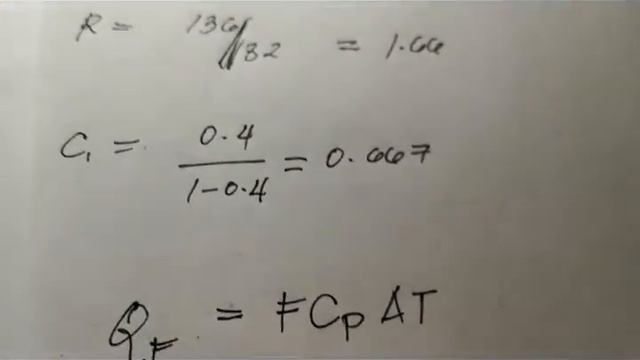 R = 136/82 = 1.66
C₁ = 0.4/1-0.4 = 0.667
Q_F = F C_P ΔT